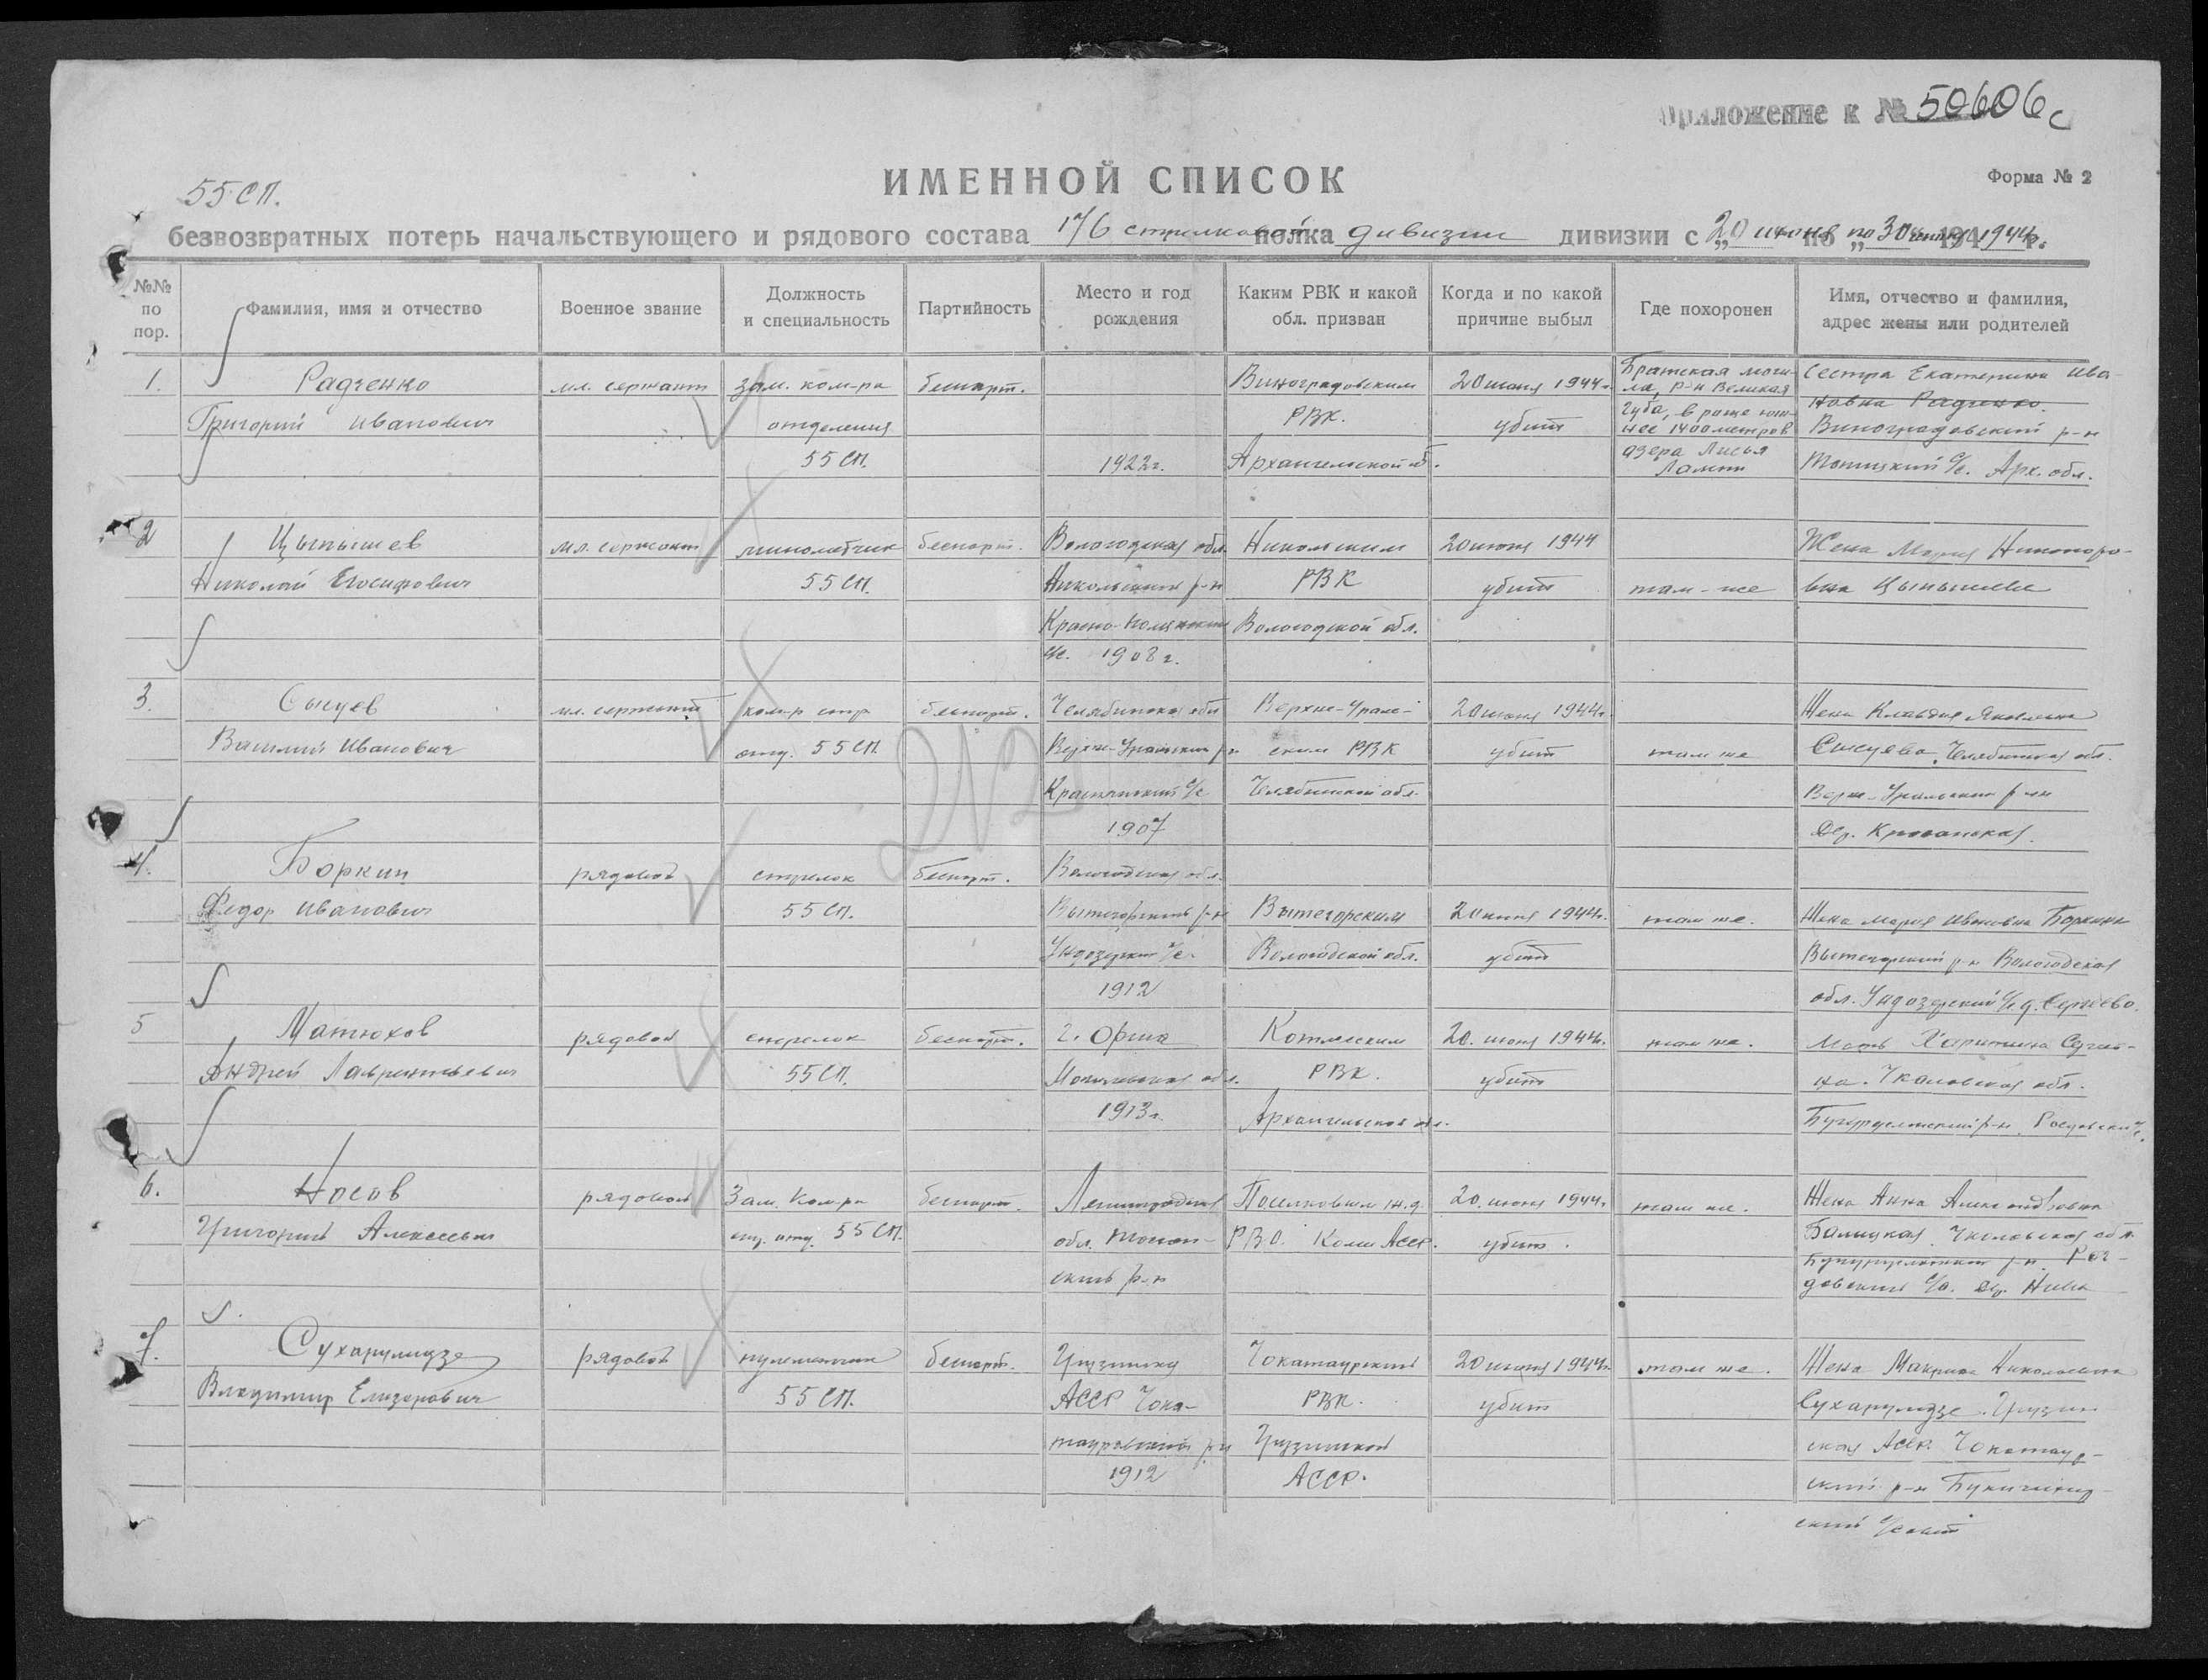 Приложение к № 50606с
ИМЕННОЙ СПИСОК
Форма № 2
55 СП.
безвозвратных потерь начальствующего и рядового состава 176 стрелковой полка дивизии дивизии с „20 июня по „по 30 июня 194 1944 г.
№№ по пор.
Фамилия, имя и отчество
Военное звание
Должность и специальность
Партийность
Место и год рождения
Каким РВК и какой обл. призван
Когда и по какой причине выбыл
Где похоронен
Имя, отчество и фамилия, адрес жены или родителей
1. Радченко мл. сержант зам. ком-ра беспарт. Виноградовским 20 июня 1944 г. Братская моги- Сестра Екатерина Ива-
ла, р-н Великая новна Радченко.
Григорий Иванович отделения РВК. убит Губа, в роще юж- Виноградовский р-н
нее 1400 метров
55 СП. 1922 г. Архангельской об. озера Лисья с/с. Арх. обл.
Лампи
2 Цыпышев мл. сержант минометчик беспарт. Вологодская обл. Никольским 20 июня 1944 Жена Мария Никоноро-
Николай 55 СП. Никольский р-н РВК убит там-же вна Цыпышева
Вологодской обл.
с/с. 1908 г.
3. Сысуев мл. сержант ком-р стр беспарт. Челябинская обл Верхне-Ураль- 20 июня 1944 г. Жена Клавдия Яковлевна
Василий Иванович отд. 55 СП. Верхне-Уральский р-н ским РВК убит там же Сысуева, Челябинская обл.
с/с Челябинской обл. Верхне-Уральский р-н
1907 дер.
4. Боркин рядовой стрелок беспарт. Вологодская обл.
Федор Иванович 55 СП. Вытегорский р-н Вытегорским 20 июня 1944 г. там же. Жена Мария Ивановна Боркина
Ундозерский с/с. Вологодской обл. убит Вытегорский р-н Вологодская
1912 обл. Ундозерский с/с д. Сергеево.
5 Матюхов рядовой стрелок беспарт. г. Орша Котласским 20. июня 1944 г. там же. Мать Харитина
Андрей Лаврентьевич 55 СП. Могилевская обл. РВК. убит Чкаловская обл.
1913 г. Архангельской обл. Бугурусланский р-н
6. Носов рядовой Зам. Ком-ра беспарт. Ленинградская 20. июня 1944 г. там же. Жена Анна Александровна
Григорий Алексеевич отд. 55 СП. обл. Коми АССР. убит. Чкаловская обл.
ский р-н Бугурусланский р-н
с/с. дер. Нива
7. Сухарулидзе рядовой пулеметчик беспарт. Грузинская Чохатаурским 20 июня 1944 г. там же. Жена Николаевна
Владимир Елизарович 55 СП. АССР Чоха- РВК. убит Сухарулидзе. Грузин
тауровский р-н Грузинской ская АССР. Чохатаур-
1912 АССР. ский р-н
ский с/совет